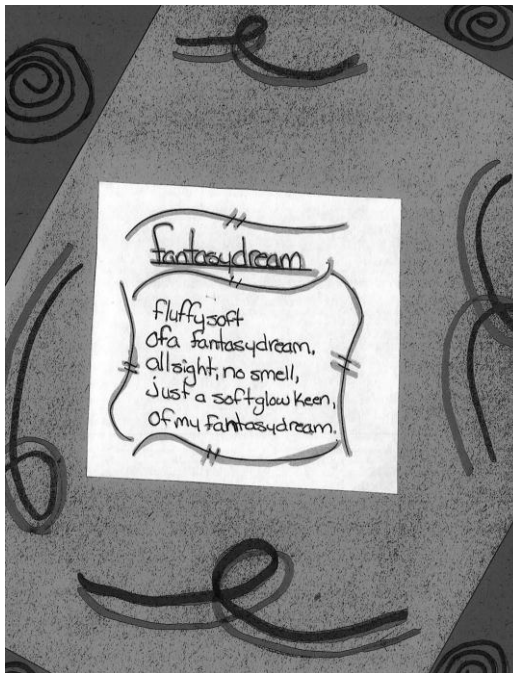 fantasydream
fluffy soft
of a fantasydream,
all sight, no smell,
just a soft glow keen,
of my fantasydream.